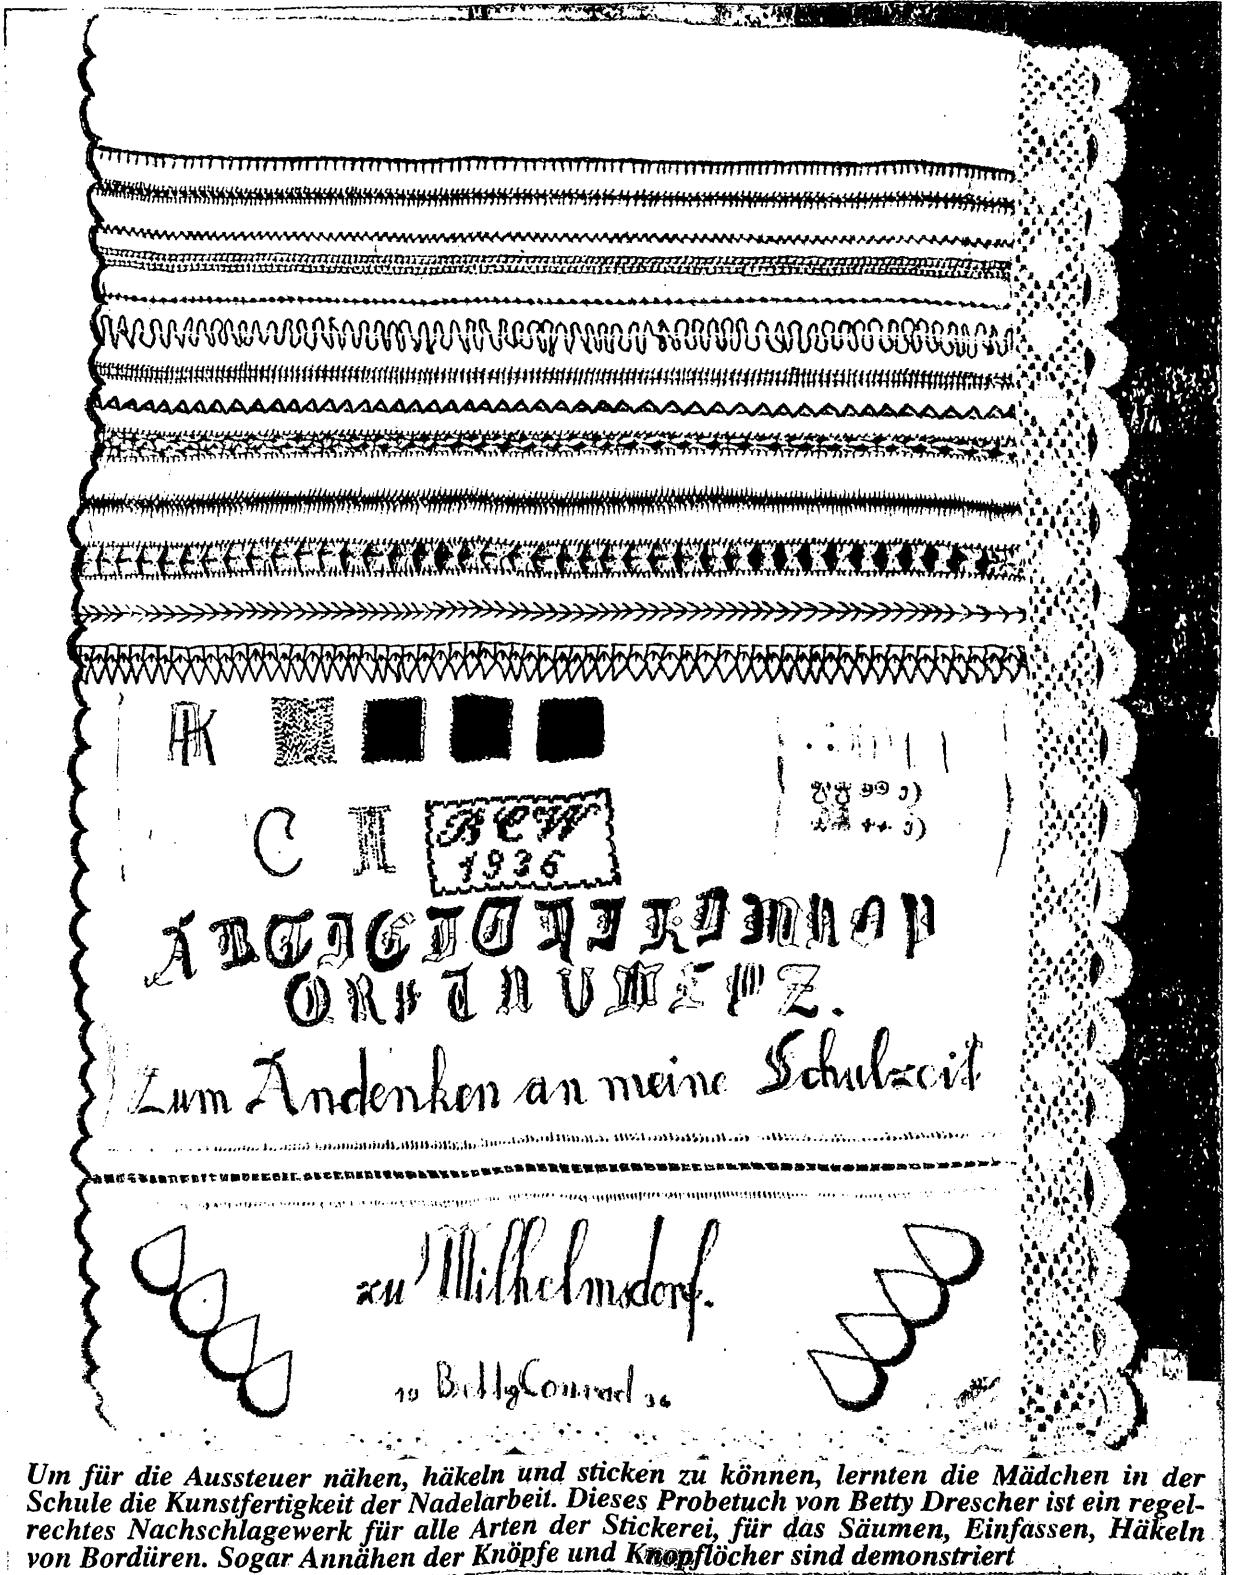 AK
C I
BCW
1936
A B C D E F G H I K L M N O P
Q R S T U V W X Y Z.
Zum Andenken an meine Schulzeit
zu Wilhelmsdorf.
19 Betty Conrad 36
Um für die Aussteuer nähen, häkeln und sticken zu können, lernten die Mädchen in der
Schule die Kunstfertigkeit der Nadelarbeit. Dieses Probetuch von Betty Drescher ist ein regel-
rechtes Nachschlagewerk für alle Arten der Stickerei, für das Säumen, Einfassen, Häkeln
von Bordüren. Sogar Annähen der Knöpfe und Knopflöcher sind demonstriert